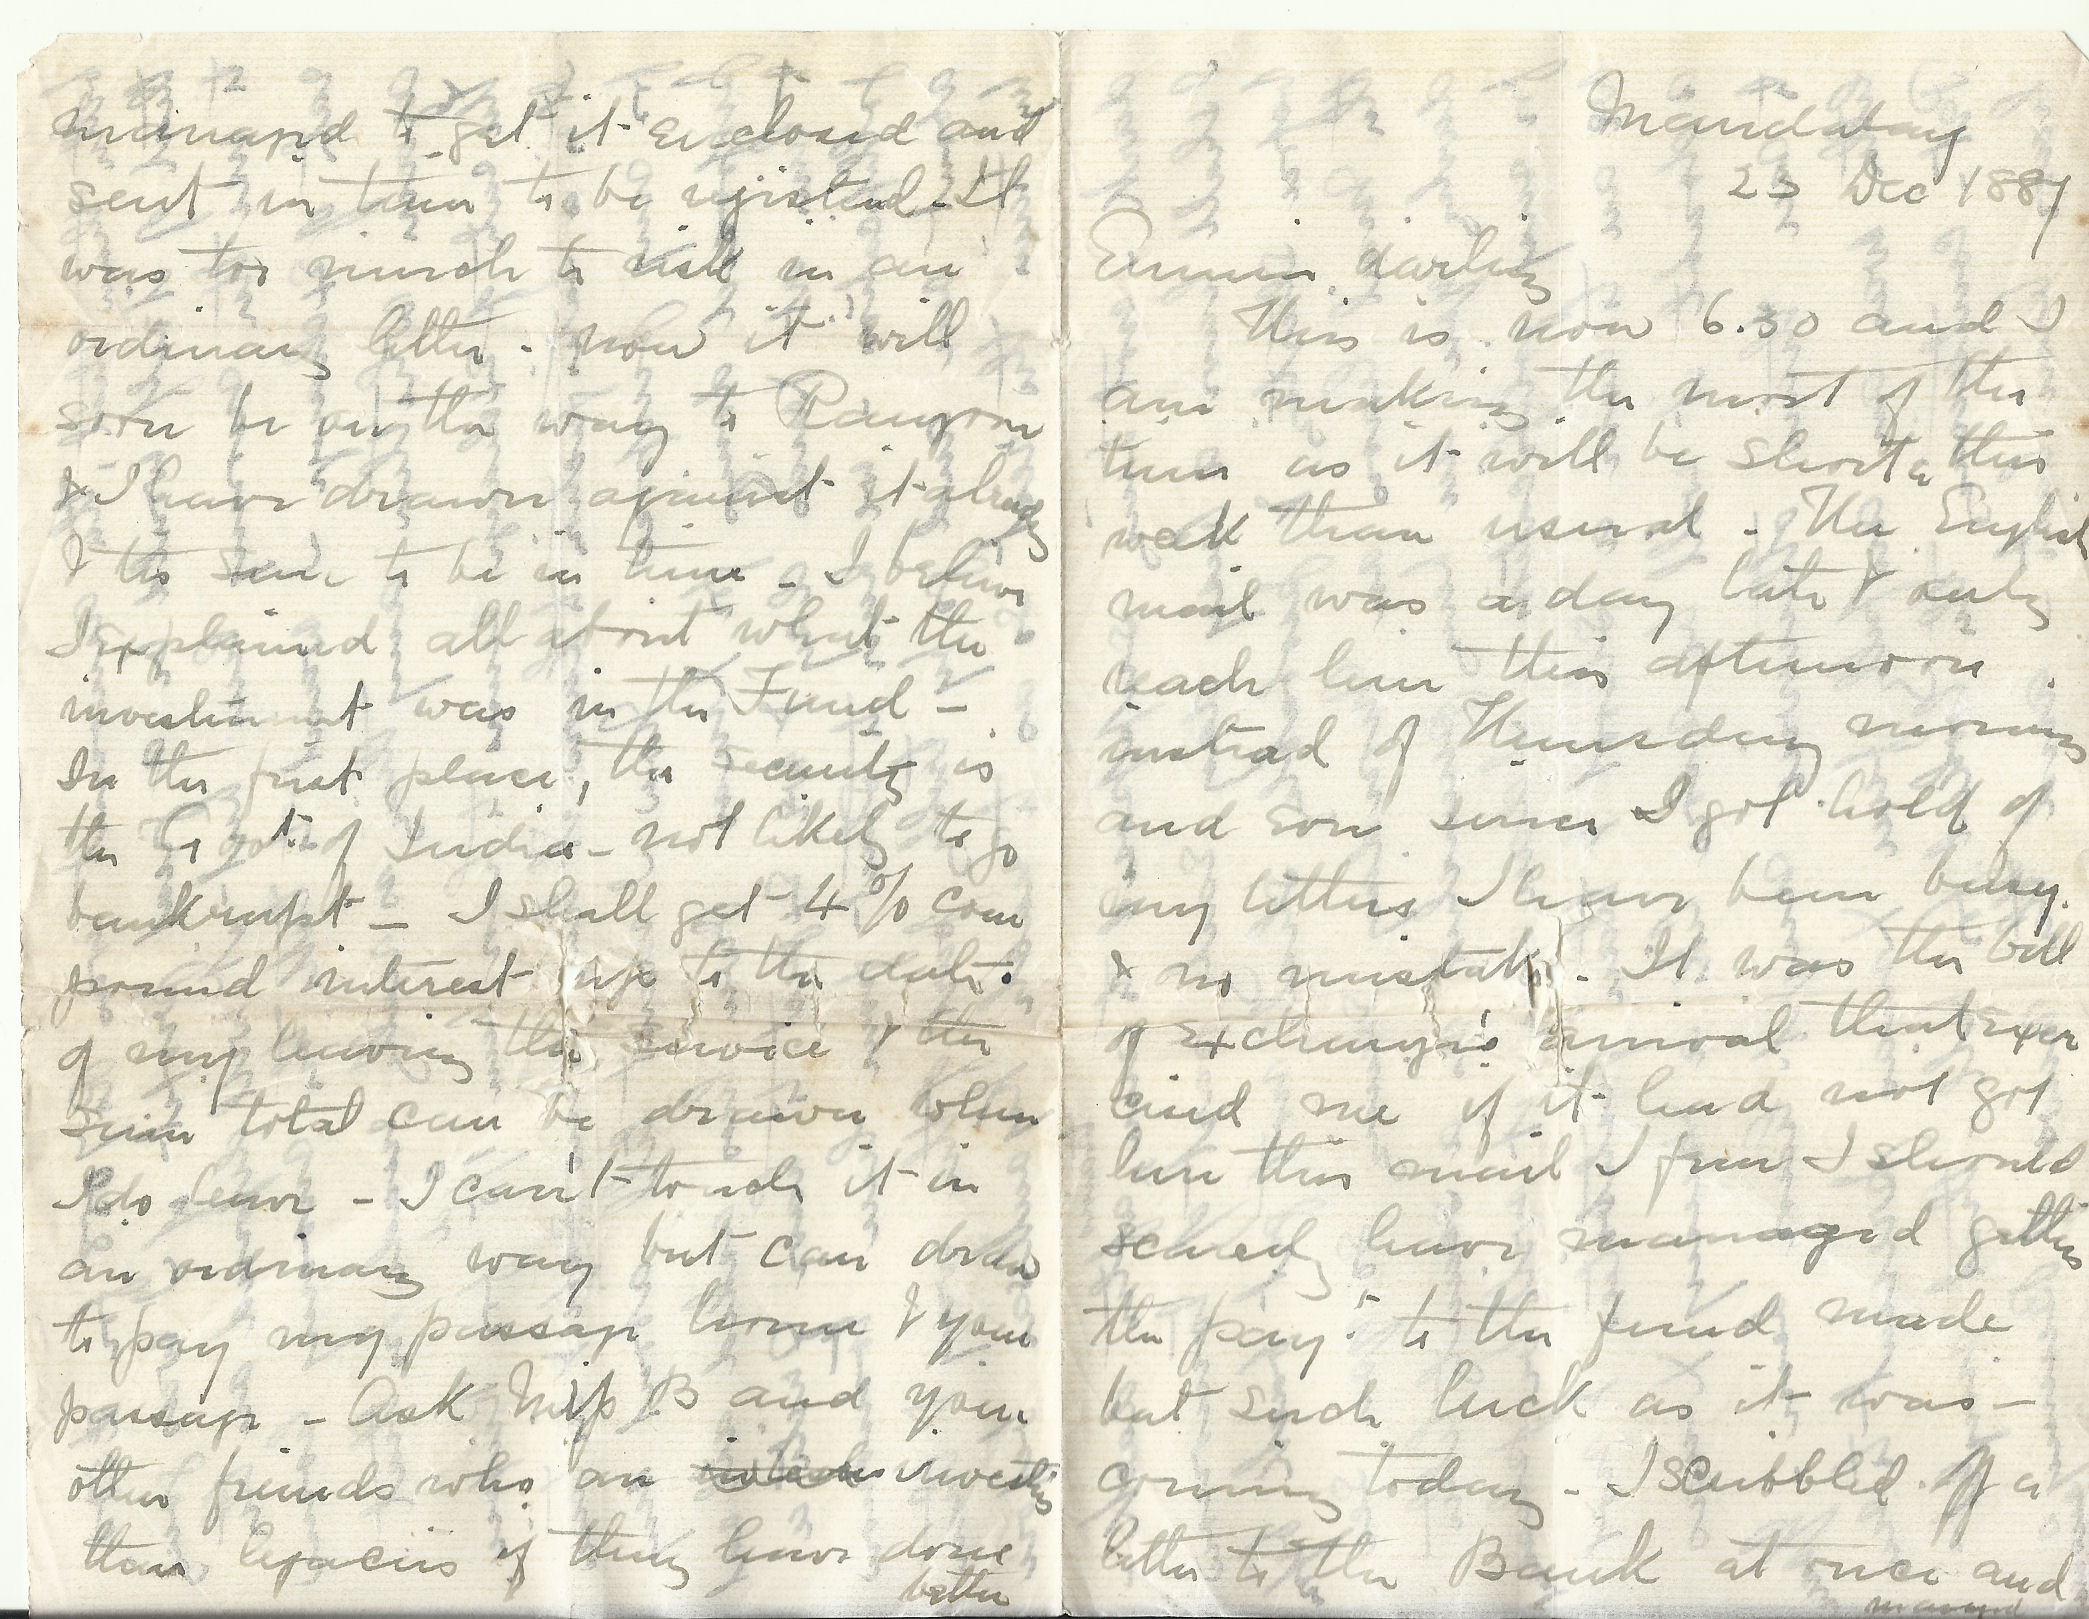 Mandalay
23 Dec 1887
Emmie darling
This is now 6.30 and I
am making the most of the
time as it will be shorter this
week than usual - The English
mail was a day late & only
reach here this afternoon
instead of Thursday morning
and ever since I got hold of
my letters I have been busy
& no mistake - It was the bill
of exchange's arrival that exer
cised me if it had not got
here this mail I fear I should
scarcely have managed getting
the paymt to the fund made
but such luck as it was -
coming today - I scribbled off a
letter to the Bank at once and
managed
managed to get it enclosed and
sent in time to be registered - It
was too much to risk in an
ordinary letter - now it will
soon be on the way to Rangoon
& I have drawn against it already
I too sure to be in time - I believe
I explained all about what the
investment was in the Fund -
In the first place, the security is
the Govt. of India - not likely to go
bankrupt - I shall get 4% com
pound interest up to the date
of my leaving the service & the
sum total can be drawn when
I do leave - I can't touch it in
an ordinary way but can draw
to pay my passage home & your
passage - Ask Miss B and your
other friends who are investing
their legacies if they have done
better